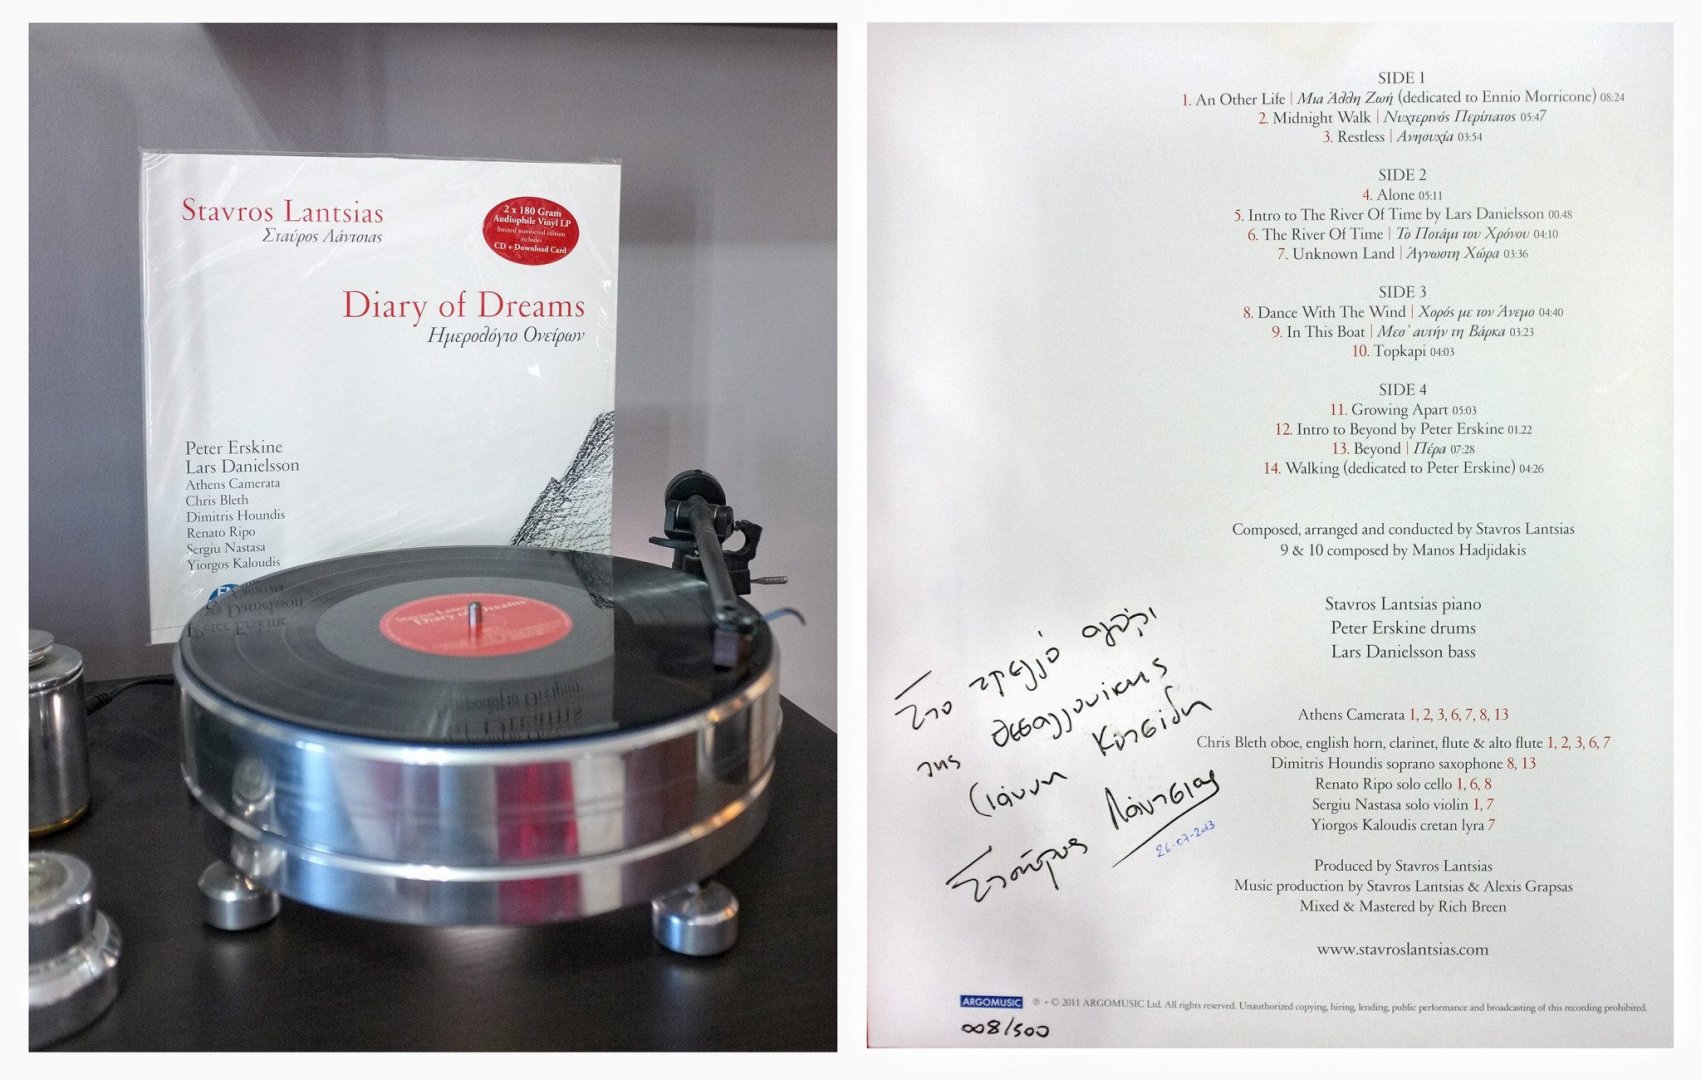 Stavros Lantsias
Σταύρος Λάντσιας
2 x 180 Gram
Audiophile Vinyl LP
limited numbered edition
includes
CD + Download Card
Diary of Dreams
Ημερολόγιο Ονείρων
Peter Erskine
Lars Danielsson
Athens Camerata
Chris Bleth
Dimitris Houndis
Renato Ripo
Sergiu Nastasa
Yiorgos Kaloudis
Stavros Lantsias
Diary of Dreams
SIDE 1
1. An Other Life | Μια Άλλη Ζωή (dedicated to Ennio Morricone) 08:24
2. Midnight Walk | Νυχτερινός Περίπατος 05:47
3. Restless | Ανησυχία 03:54
SIDE 2
4. Alone 05:11
5. Intro to The River Of Time by Lars Danielsson 00.48
6. The River Of Time | Το Ποτάμι του Χρόνου 04:10
7. Unknown Land | Άγνωστη Χώρα 03:36
SIDE 3
8. Dance With The Wind | Χορός με τον Άνεμο 04:40
9. In This Boat | Μεσ' αυτήν τη Βάρκα 03:23
10. Topkapi 04:03
SIDE 4
11. Growing Apart 05:03
12. Intro to Beyond by Peter Erskine 01.22
13. Beyond | Πέρα 07:28
14. Walking (dedicated to Peter Erskine) 04:26
Composed, arranged and conducted by Stavros Lantsias
9 & 10 composed by Manos Hadjidakis
Stavros Lantsias piano
Peter Erskine drums
Lars Danielsson bass
Athens Camerata 1, 2, 3, 6, 7, 8, 13
Chris Bleth oboe, english horn, clarinet, flute & alto flute 1, 2, 3, 6, 7
Dimitris Houndis soprano saxophone 8, 13
Renato Ripo solo cello 1, 6, 8
Sergiu Nastasa solo violin 1, 7
Yiorgos Kaloudis cretan lyra 7
Produced by Stavros Lantsias
Music production by Stavros Lantsias & Alexis Grapsas
Mixed & Mastered by Rich Breen
www.stavroslantsias.com
Στο τρελλό αγόρι
της Θεσσαλονίκης
Γιάννη Κυτσίδη
Σταύρος Λάντσιας
26-07-2013
ARGOMUSIC ℗ + © 2011 ARGOMUSIC Ltd. All rights reserved. Unauthorized copying, hiring, lending, public performance and broadcasting of this recording prohibited.
008/500